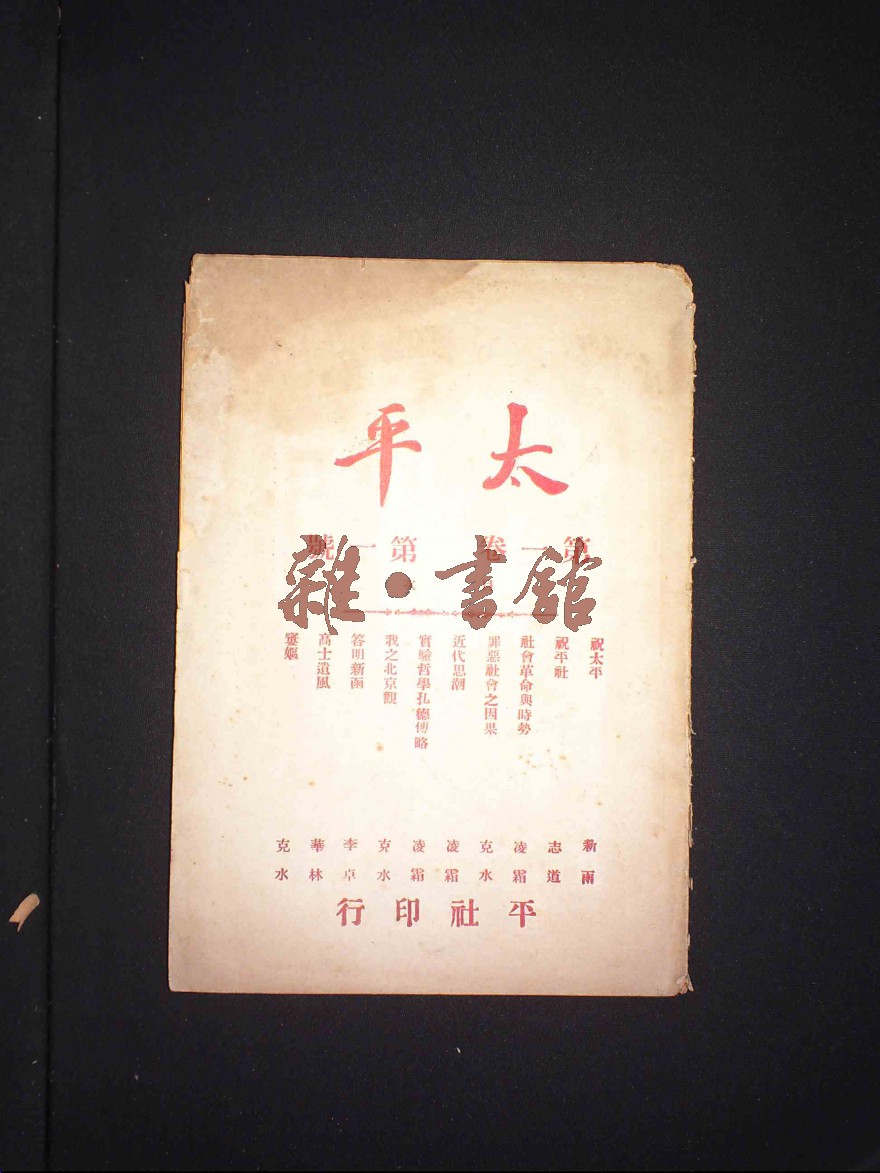 太平
第一卷 第一號
雜·書館
祝太平
祝平社
社會革命與時勢
罪惡社會之因果
近代思潮
實驗哲學孔德傳略
我之北京觀
答明新函
高士遺風
寠嫗
新雨
志道
凌霜
克水
凌霜
凌霜
克水
李卓
華林
克水
平社印行